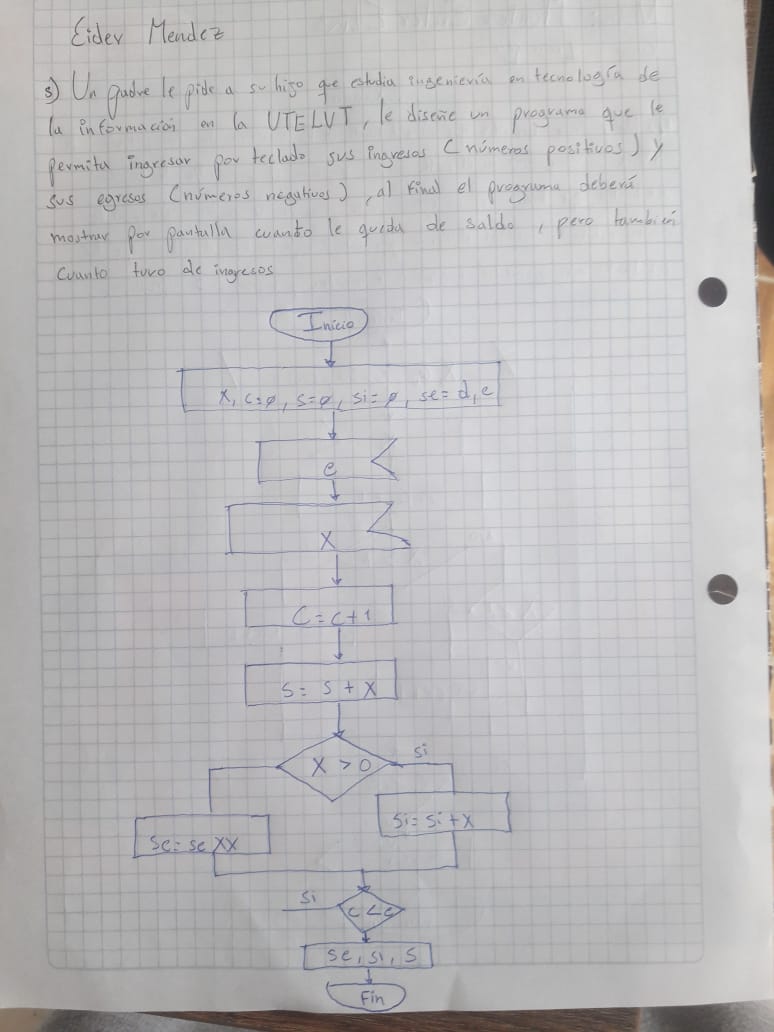 Eider Mendez
5) Un padre le pide a su hijo que estudia ingeniería en tecnología de
la información en la UTELVT, le diseñe un programa que le
permita ingresar por teclado sus ingresos (números positivos) y
sus egresos (números negativos), al final el programa deberá
mostrar por pantalla cuanto le queda de saldo, pero también
cuanto tuvo de ingresos
Inicio
X, c=ø, s=ø, si=ø, se=d,e
e
X
C=c+1
s= s+X
X > 0
si
se=se XX
si=si+X
si
c<e
se, si, s
Fin